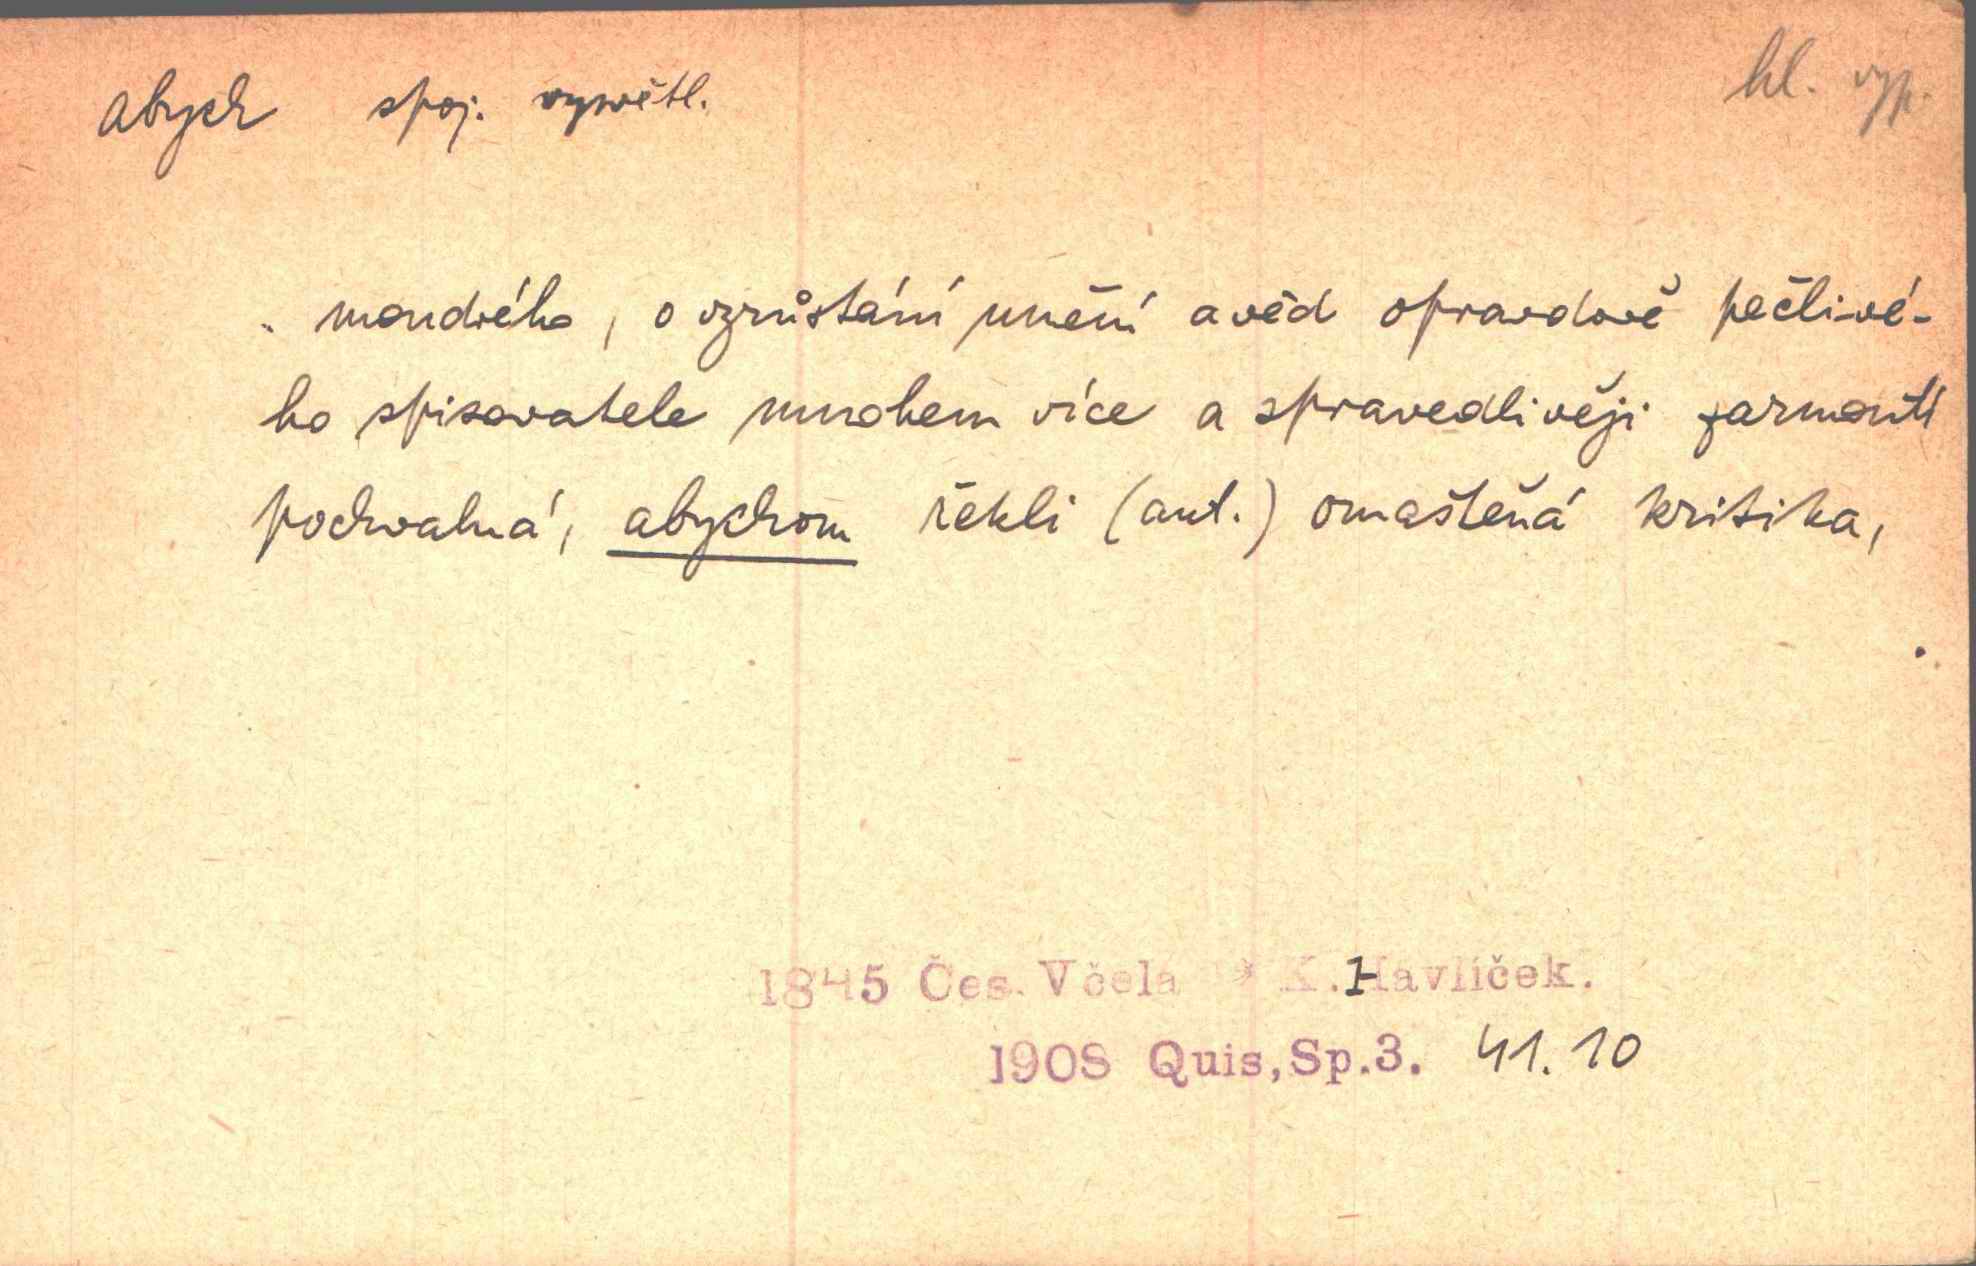 abych spoj. vysvětl. hl. vyp.
moudrého, o vzrůstání umění a věd opravdově pečlivé-
ho spisovatele mnohem více a spravedlivěji zarmoutí
pochvalná, abychom řekli (aut.) omaštěná kritika,
1845 Čes. Včela * K.Havlíček.
1908 Quis,Sp.3. 41.10